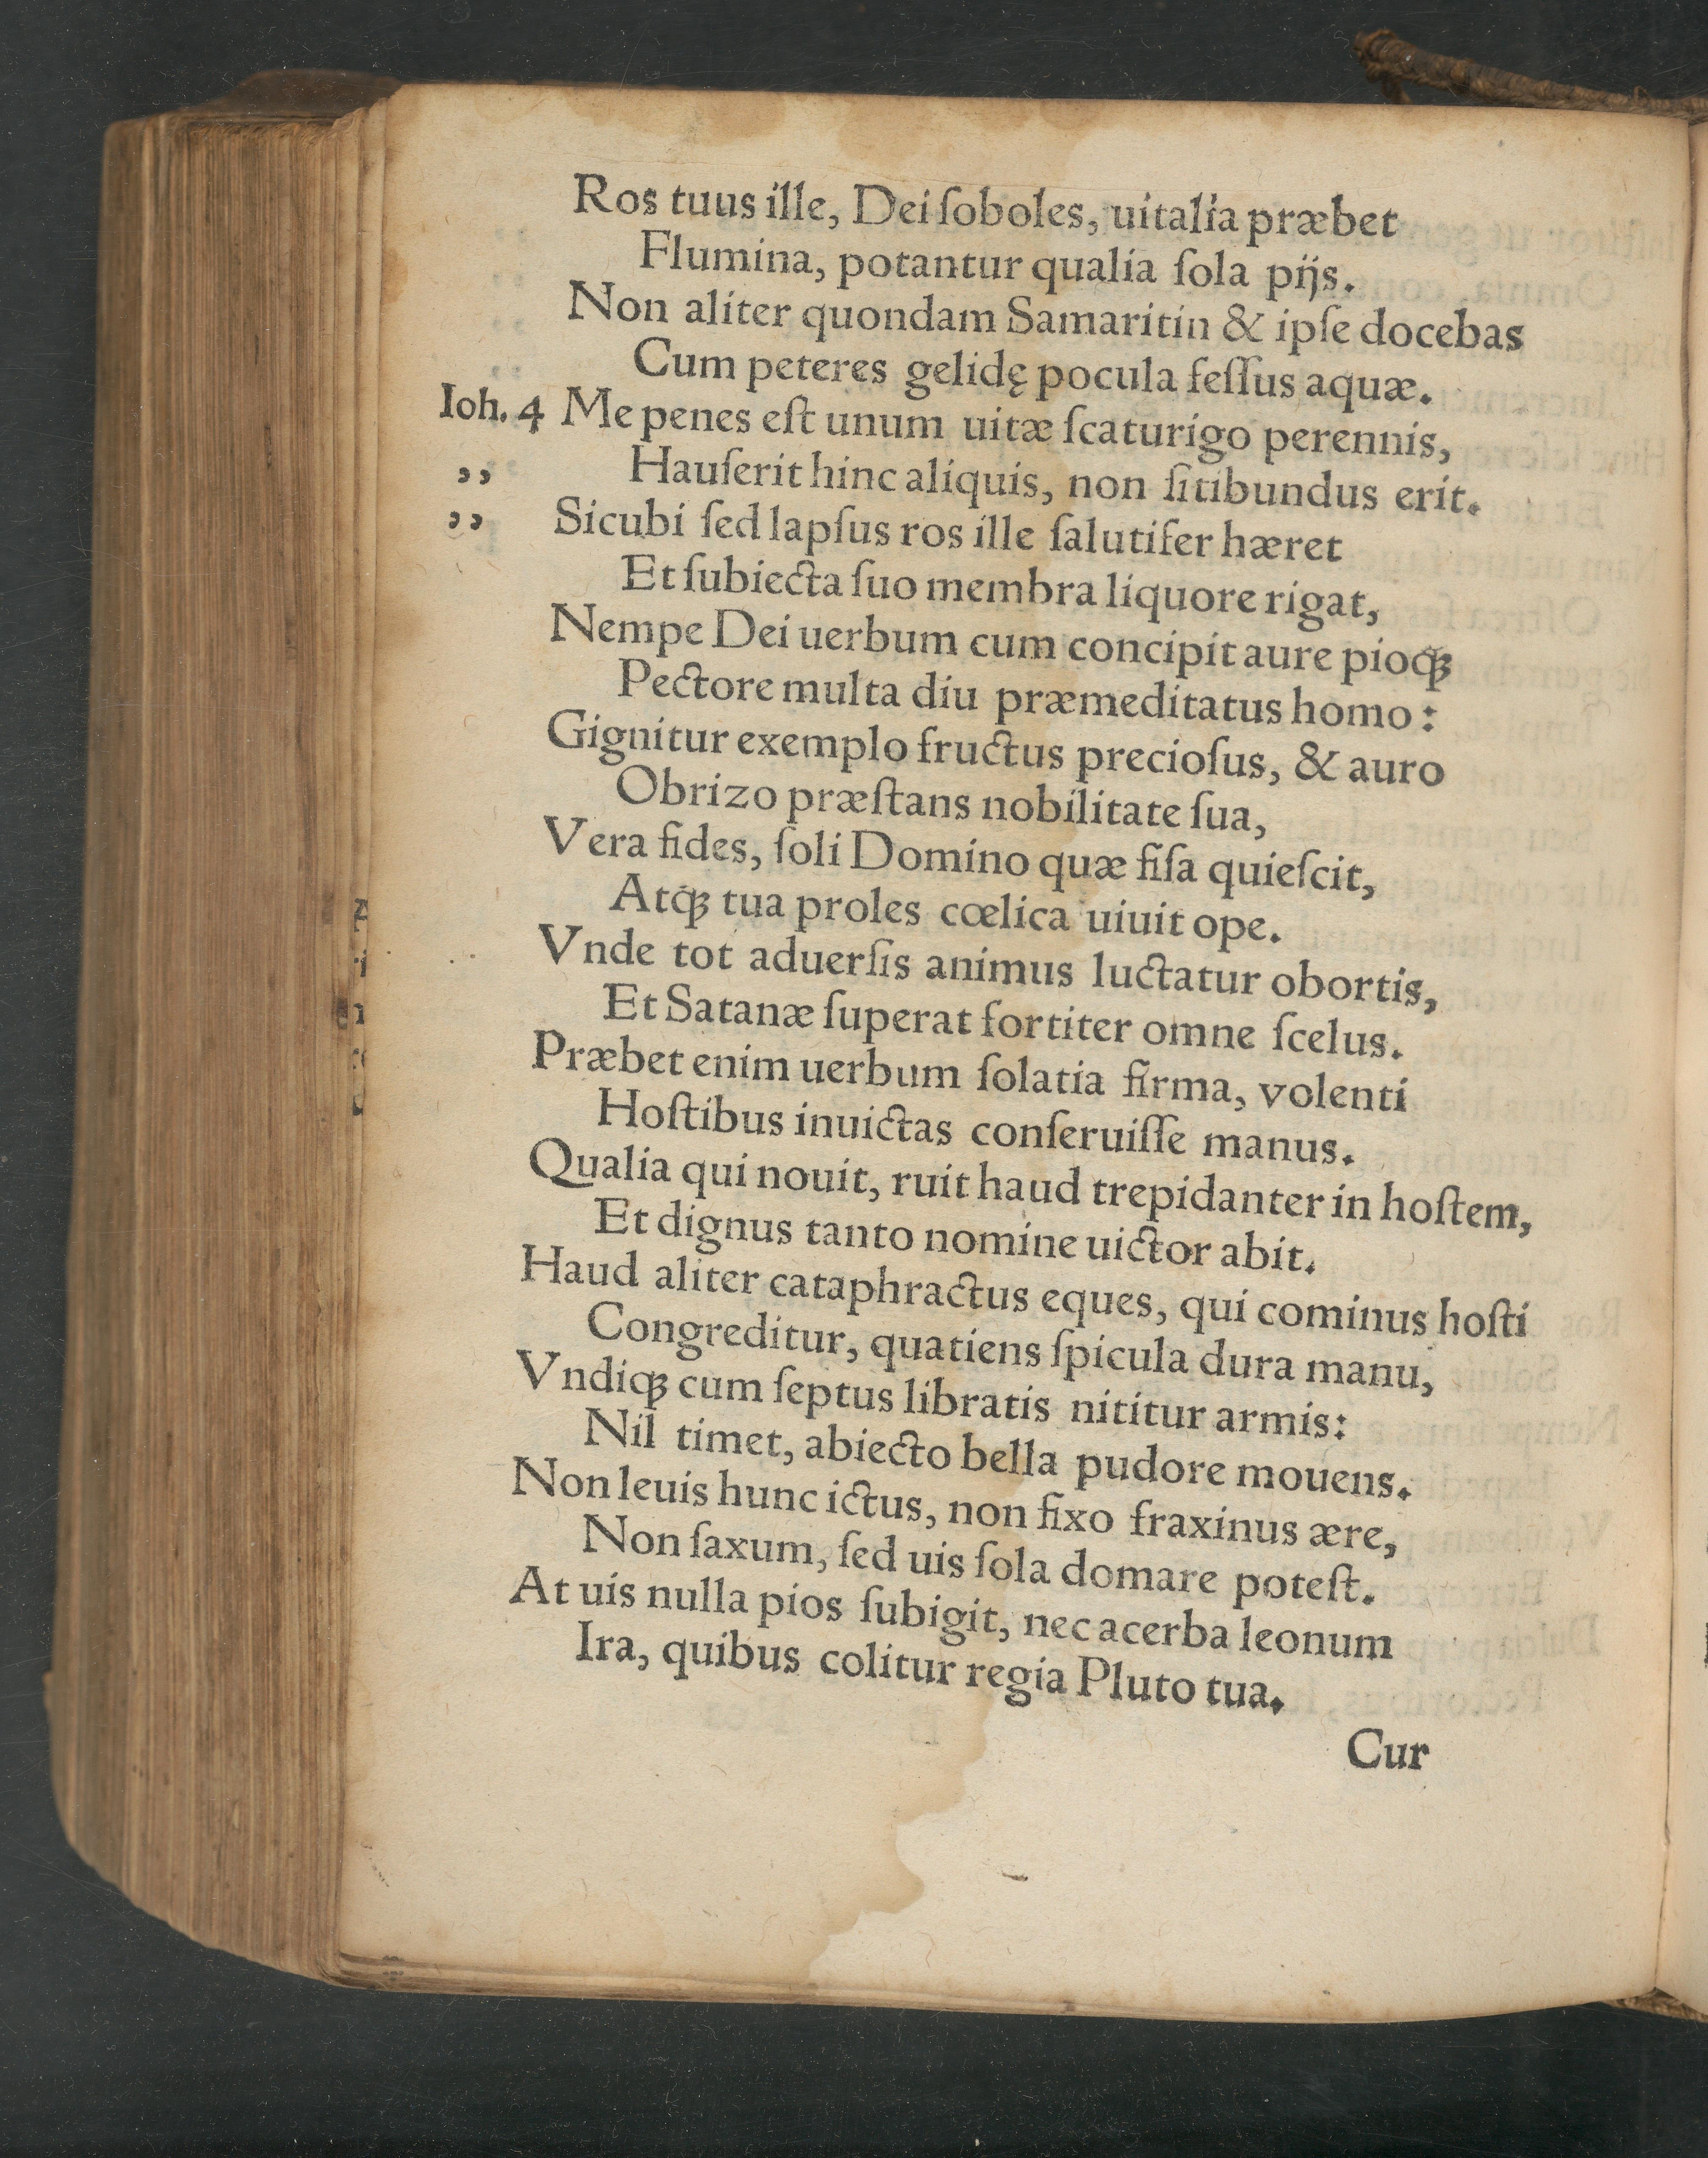 Ros tuus ille, Dei ſoboles, uitalia præbet
Flumina, potantur qualia ſola pijs.
Non aliter quondam Samaritin & ipſe docebas
Cum peteres gelidę pocula feſſus aquæ.
Ioh. 4 Me penes eſt unum uitæ ſcaturigo perennis,
,, Hauſerit hinc aliquis, non ſitibundus erit.
,, Sicubi ſed lapſus ros ille ſalutifer hæret
Et ſubiecta ſuo membra liquore rigat,
Nempe Dei uerbum cum concipit aure pioq́ꝫ
Pectore multa diu præmeditatus homo:
Gignitur exemplo fructus precioſus, & auro
Obrizo præſtans nobilitate ſua,
Vera fides, ſoli Domino quæ fiſa quieſcit,
Atq́ꝫ tua proles cœlica uiuit ope.
Vnde tot aduerſis animus luctatur obortis,
Et Satanæ ſuperat fortiter omne ſcelus.
Præbet enim uerbum ſolatia firma, volenti
Hoſtibus inuictas conſeruiſſe manus.
Qualia qui nouit, ruit haud trepidanter in hoſtem,
Et dignus tanto nomine uictor abit.
Haud aliter cataphractus eques, qui cominus hoſti
Congreditur, quatiens ſpicula dura manu,
Vndiqꝫ cum ſeptus libratis nititur armis:
Nil timet, abiecto bella pudore mouens.
Non leuis hunc ictus, non fixo fraxinus ære,
Non ſaxum, ſed uis ſola domare poteſt.
At uis nulla pios ſubigit, nec acerba leonum
Ira, quibus colitur regia Pluto tua.
Cur